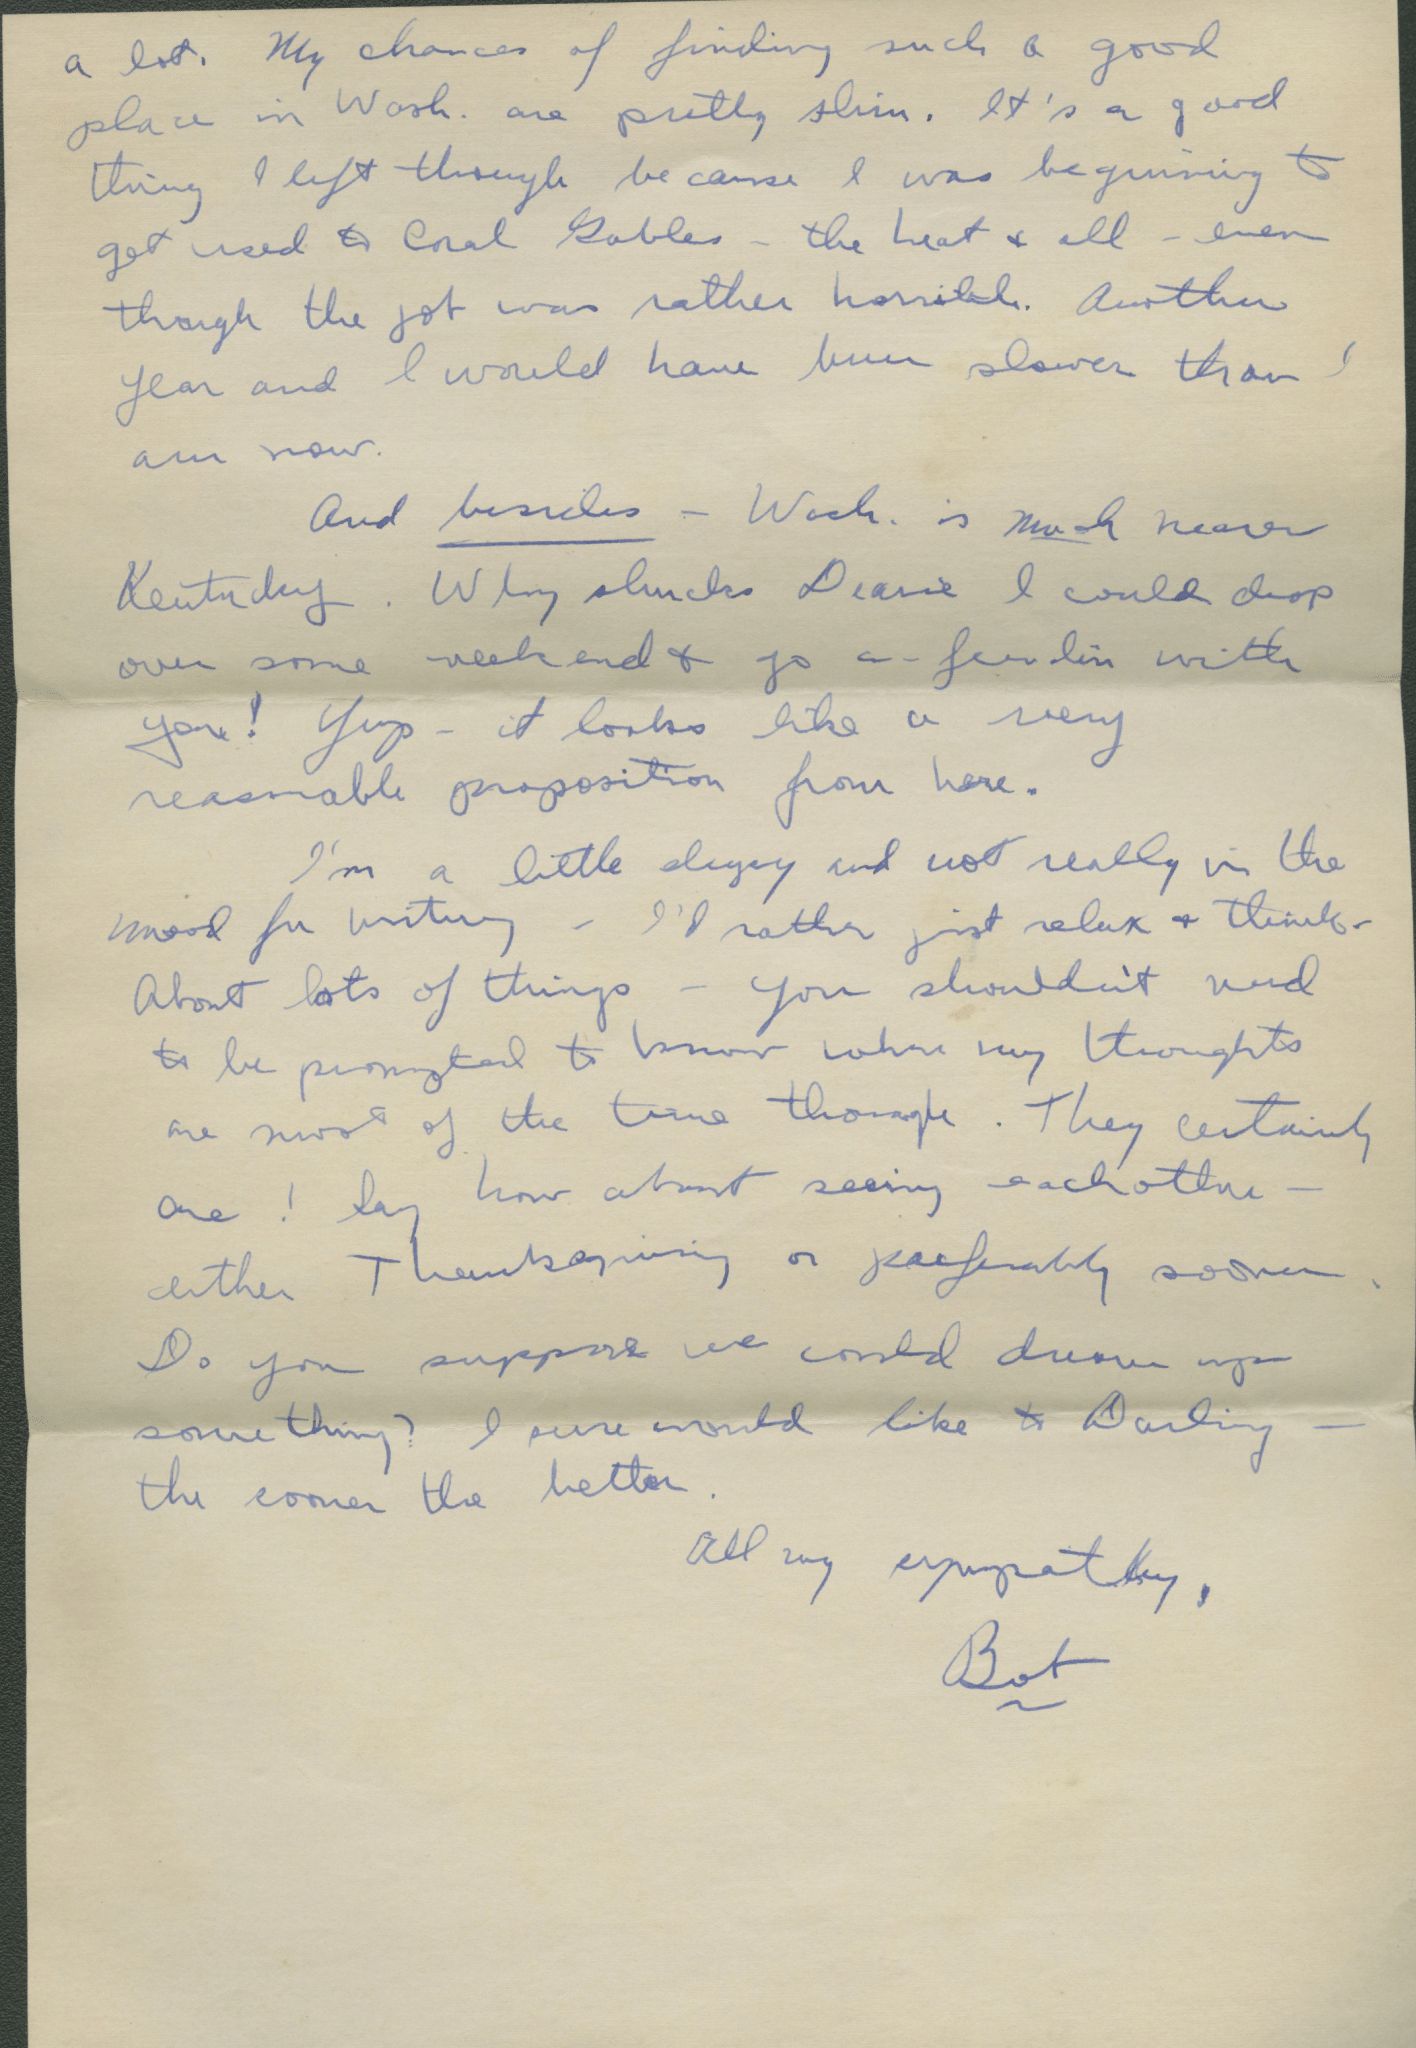 a lot. My chances of finding such a good
place in Wash. are pretty slim. It's a good
thing I left though because I was beginning to
get used to Coral Gables - the heat & all - even
though the job was rather horrible. Another
year and I would have been slower than I
am now.
And besides - Wash. is much nearer
Kentucky. Why shucks Dearie I could drop
over some weekend & go a-feudin with
you! Yup - it looks like a very
reasonable proposition from here.
I'm a little and not really in the
mood for writing - I'd rather just relax & think -
About lots of things - you shouldn't need
to be prompted to know where my thoughts
are most of the time though. They certainly
are! Say how about seeing eachother -
either Thanksgiving or preferably sooner.
Do you suppose we could dream up
something? I sure would like to Darling -
the sooner the better.
All my sympathy,
Bot